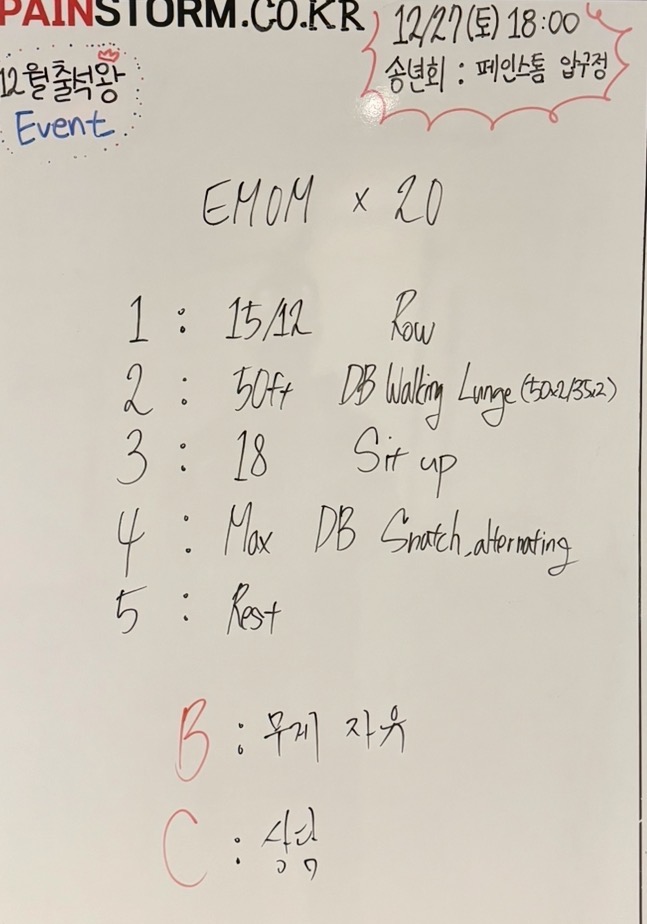 PAINSTORM.CO.KR
12/27(토) 18:00
송년회 : 페인스톰 압구정
12월 출석왕
Event
EMOM x 20
1 : 15/12 Row
2 : 50ft DB Walking Lunge (50x2/35x2)
3 : 18 Sit up
4 : Max DB Snatch, alternating
5 : Rest
B : 무게 자유
C : 상담